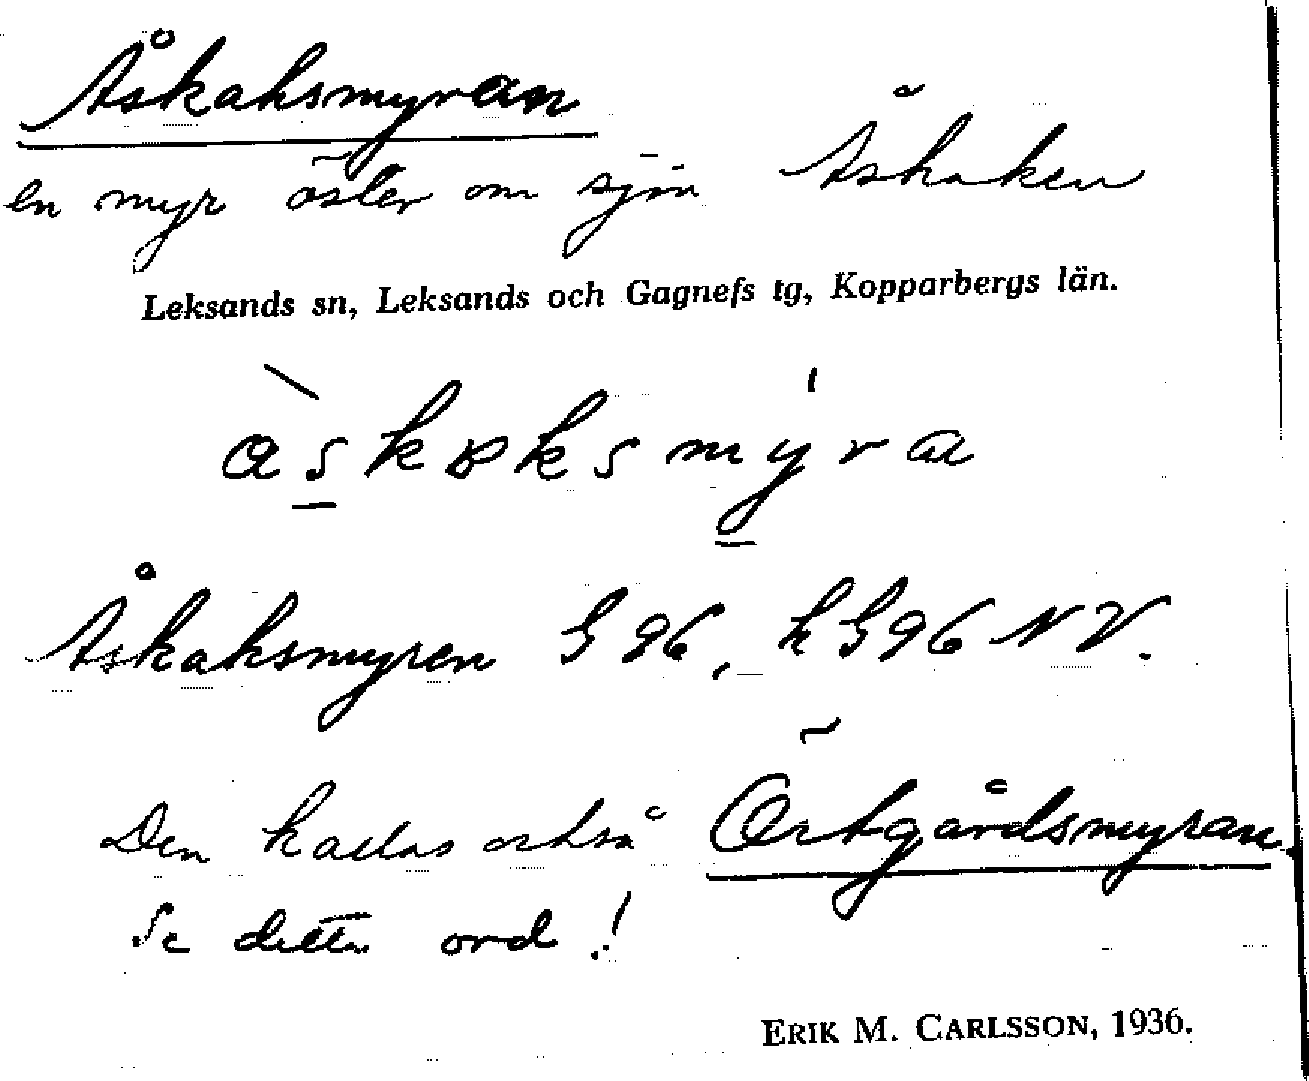 Åskaksmyran
en myr öster om sjön Åskaken
Leksands sn, Leksands och Gagnefs tg, Kopparbergs län.
àskɒksmýra
Åskaksmyren G 96, h G 96 NV.
Den kallas också Örtgårdsmyran.
Se detta ord!
ERIK M. CARLSSON, 1936.